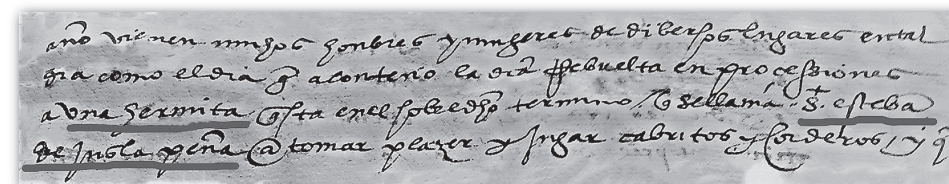 año vienen muchos honbres y mugeres de dibersos lugares en tal
dia como el dia q̃ acontecio la dicħa Rebuelta en processiones
a vna hermita q̃ esta en el sobredicħo termino / q̃ se llama. S.t esteba
de sugla peña @ tomar plazer y Jugar cabritos y Corderos / y q̃